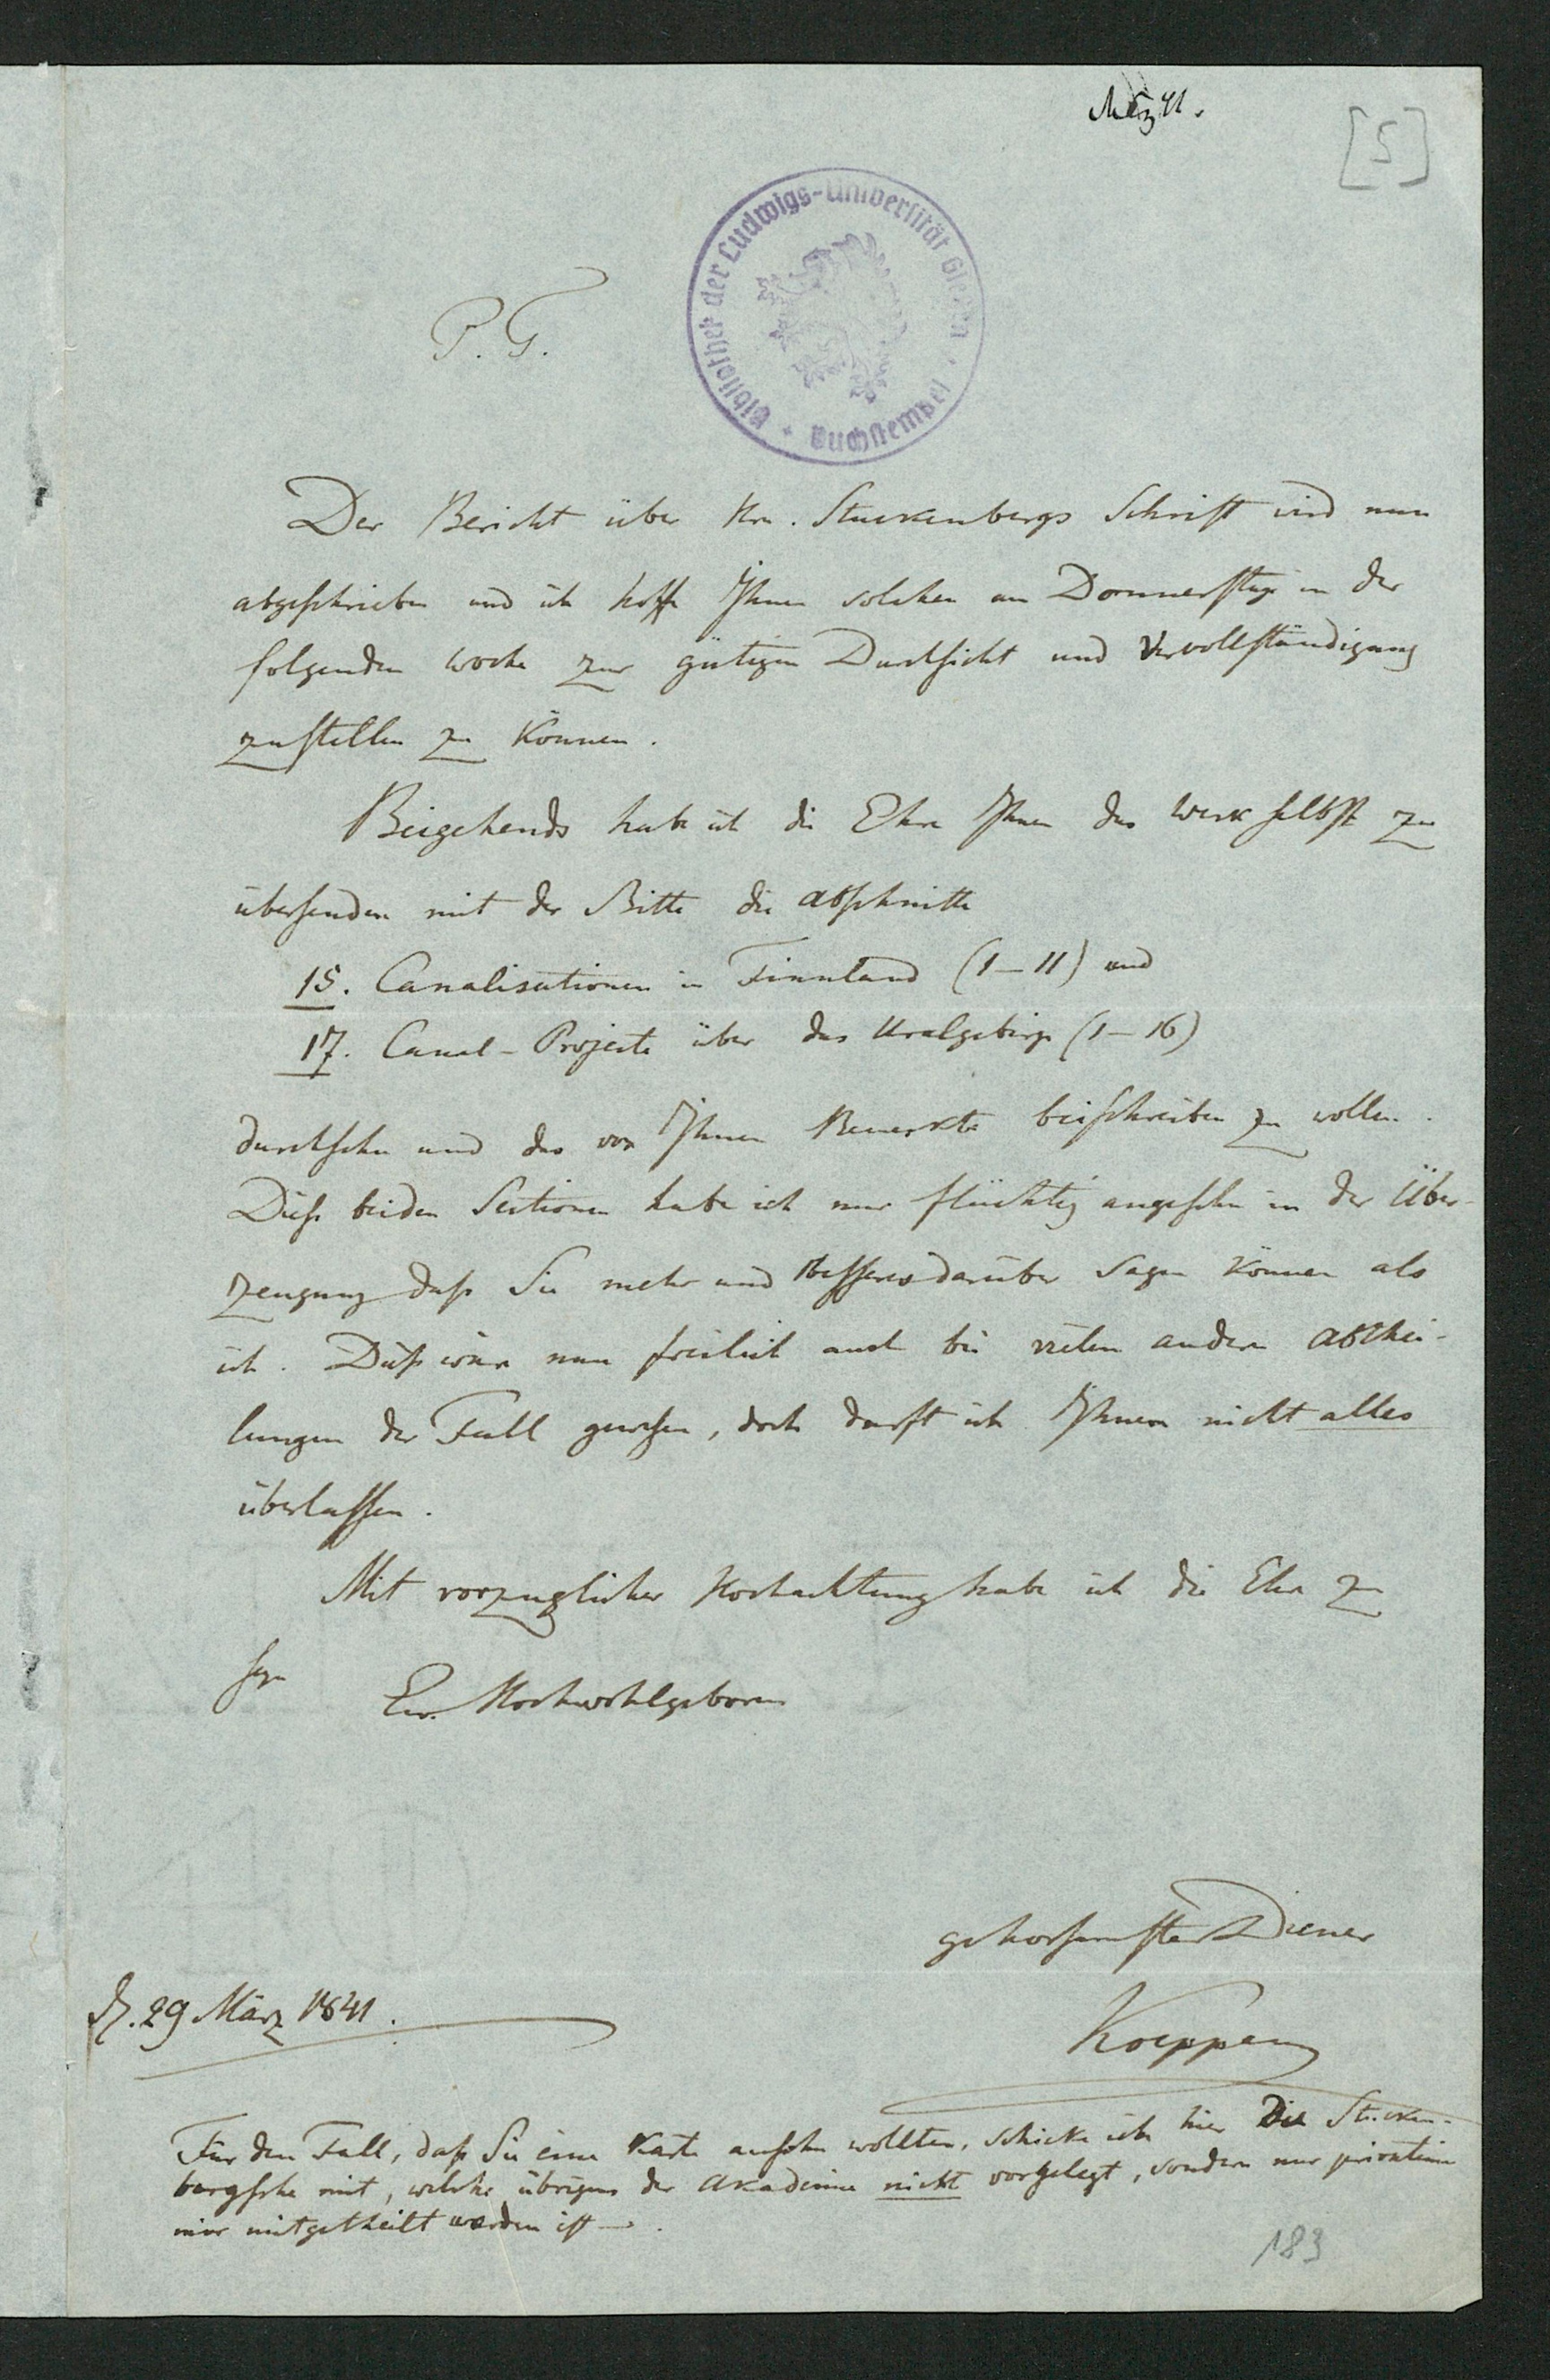 März 41.
[5]
Bibliothek der Ludwigs-Universität Gießen
Buchstempel
P. T.
Der Bericht über Hrn. Stuckenbergs Schrift wird nun
abgeschrieben und ich hoffe Ihnen solchen am Donnerstage in der
folgenden Woche zur gütigen Durchsicht und Vervollständigung
zustellen zu können.
Beigehends habe ich die Ehre Ihnen das Werk selbst zu
übersenden mit der Bitte die Abschnitte
15. Canalisationen in Finnland (1–11) und
17. Canal-Projecte über das Uralgebirge (1–16)
durchsehn und das von Ihnen Bemerkte beischreiben zu wollen.
Diese beiden Sectionen habe ich nur flüchtig angesehn in der Über-
zeugung daß Sie mehr und Besseres darüber sagen können als
ich. Dieß wäre nun freilich auch bei vielen andern Abthei-
lungen der Fall gewesen, doch durft ich Ihnen nicht alles
überlassen.
Mit vorzüglicher Hochachtung habe ich die Ehre zu
seyn
Ew. Hochwohlgeboren
gehorsamster Diener
Koeppen
D. 29 März 1841.
Für den Fall, daß Sie eine Karte ansehn wollten, schicke ich hier die Stucken-
bergsche mit, welche übrigens der Akademie nicht vorgelegt, sondern nur privatim
mir mitgetheilt worden ist –.
183